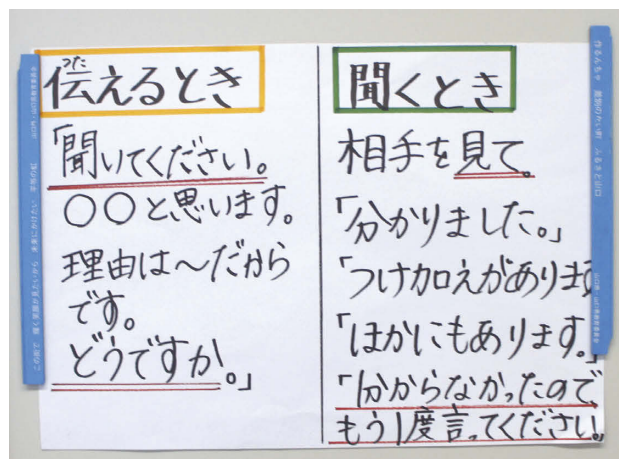 伝えるとき
つた
「聞いてください。
〇〇と思います。
理由は〜だから
です。
どうですか。」
聞くとき
相手を見て。
「分かりました。」
「つけ加えがあります
「ほかにもあります。」
「分からなかったので、
もう1度言ってください。」